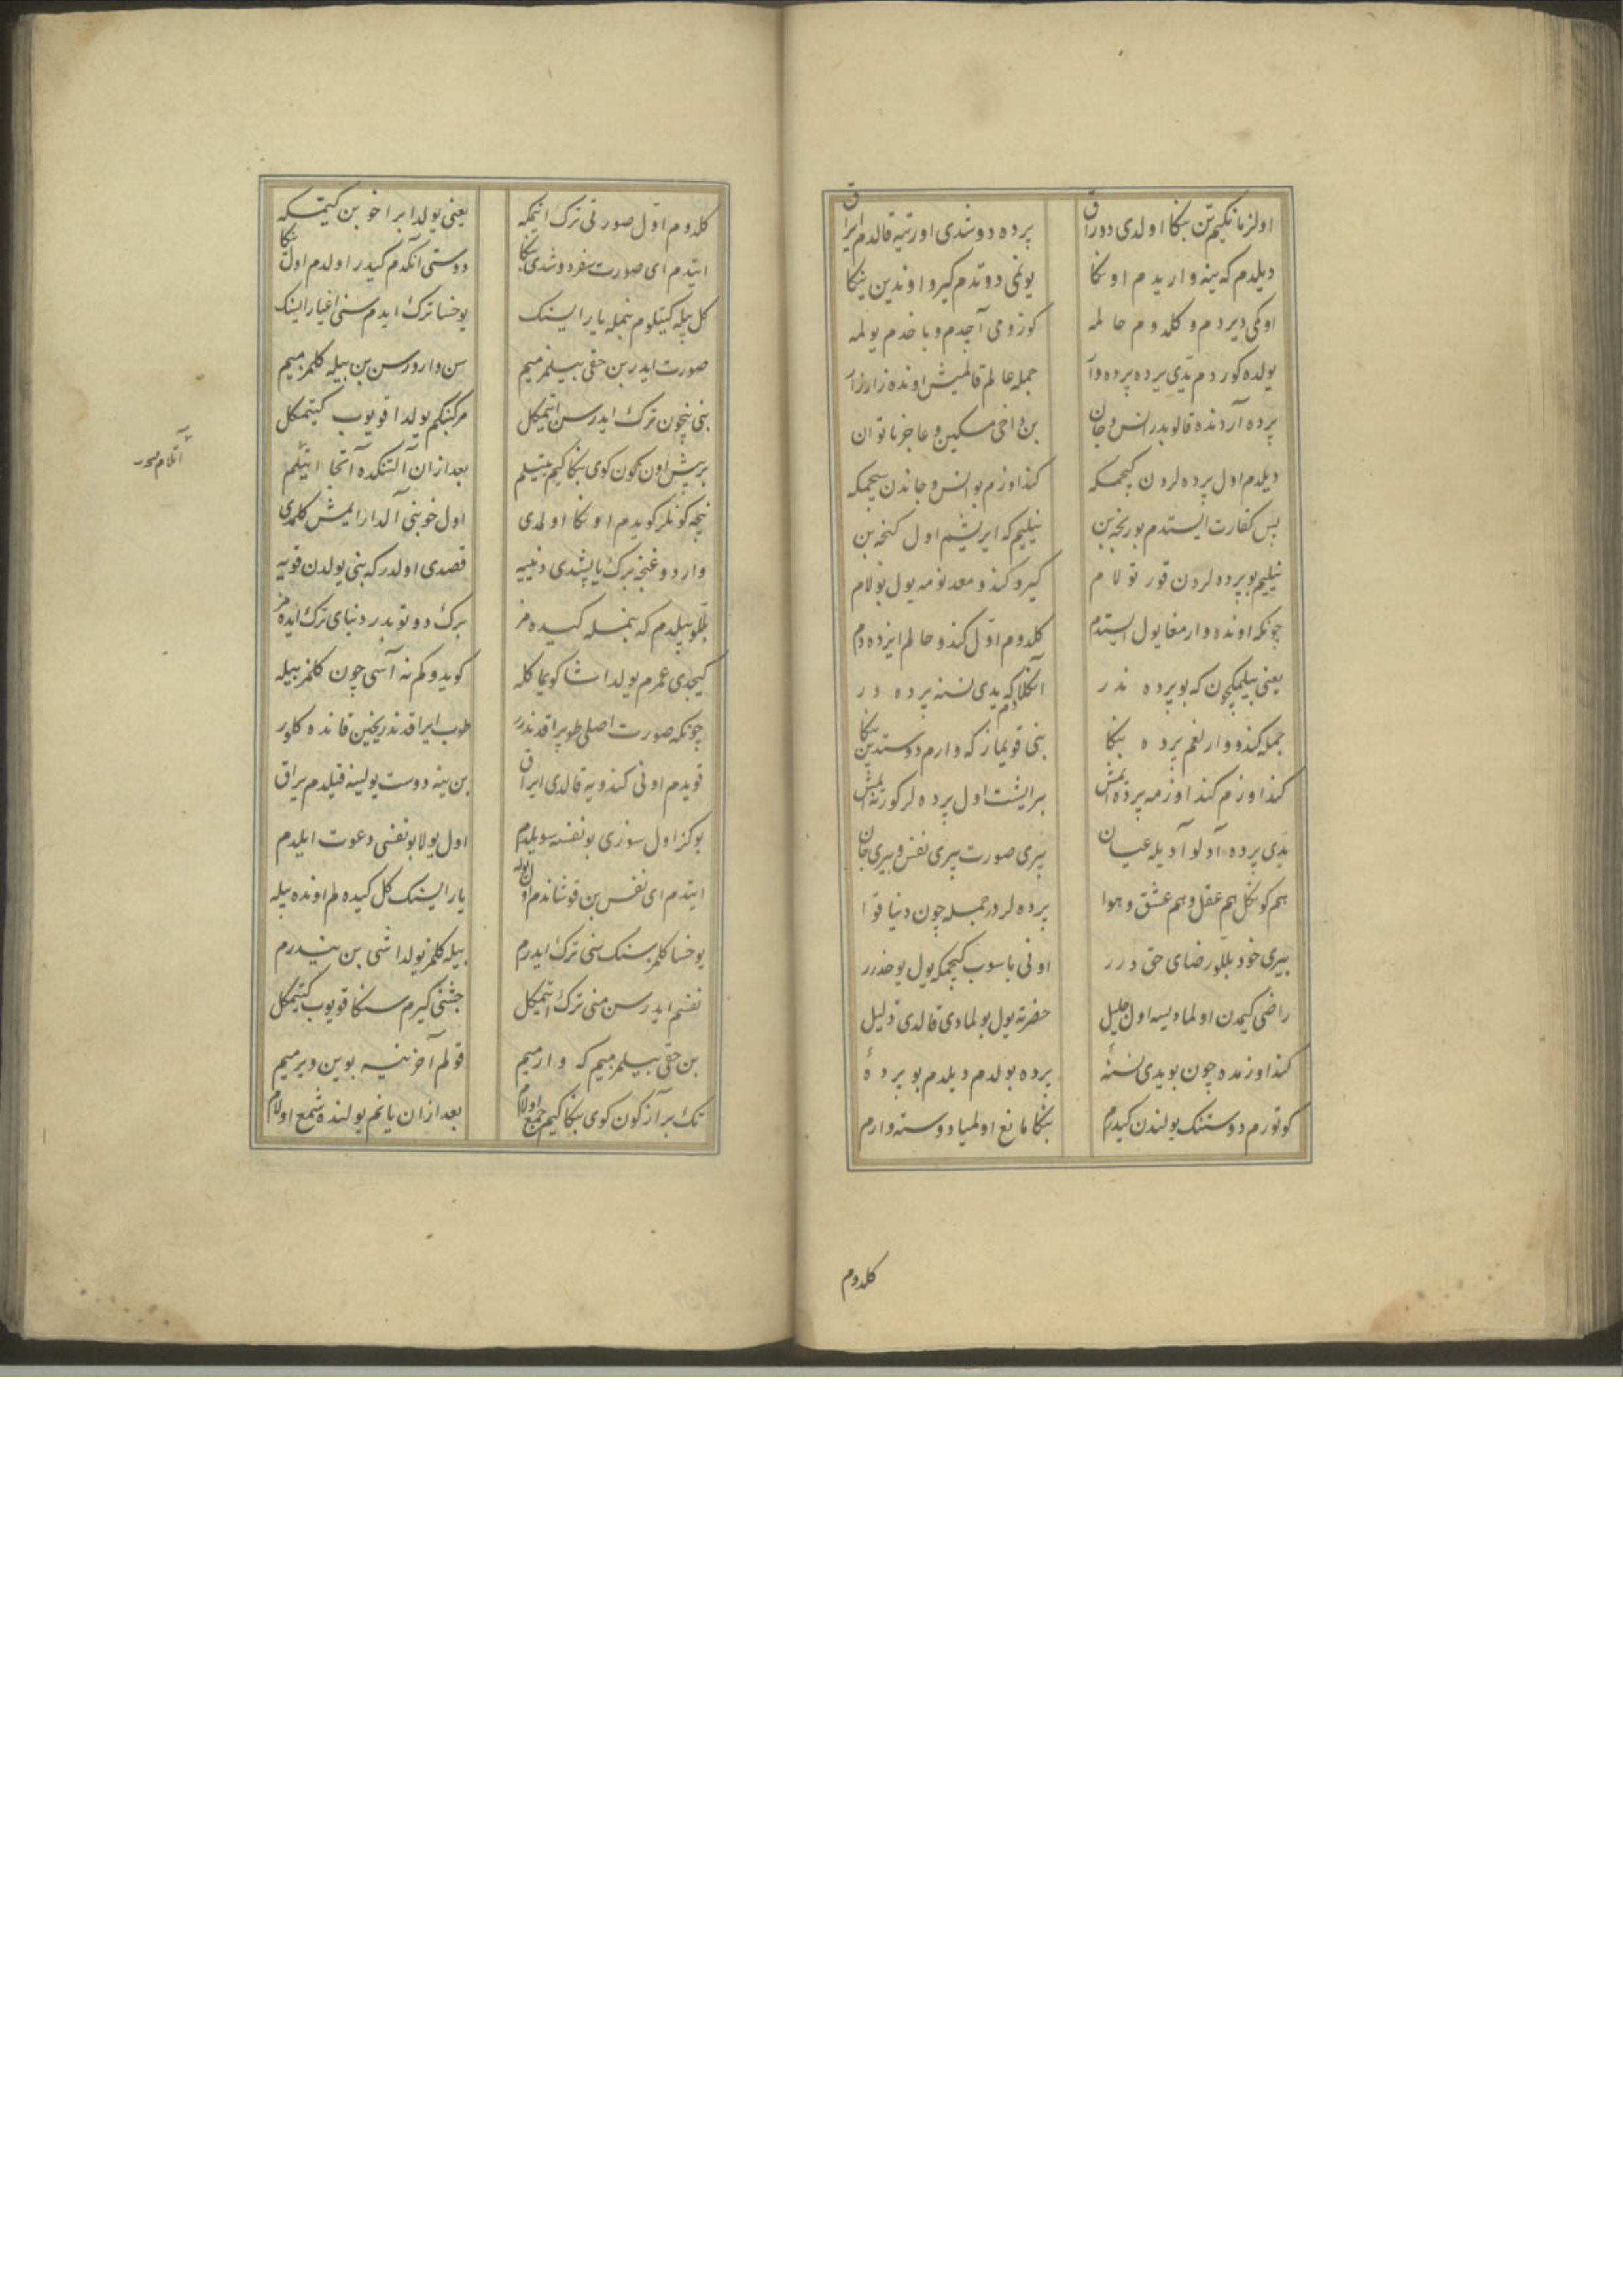 اولزمانكیم تن بنكا اولدی دوراق پرده دوشدی اورتیه قالدم ایراق
دیلدم كه ینه واریدم اونكا یونمی دوتدم كیرو اوندین ینكا
اوكمی دیردم و كلدوم حالمه كوزومی آچدم و باخدم یولمه
یولده كوردم یدی پرده پرده وار جمله عالم قالمیش اونده زار زار
پرده آردنده قالوبدر انس و جان بن داخی مسكین و عاجز ناتوان
دیلدم اول پرده لردن كیچمكه كنداوزم بو انس و جاندن سیچمكه
پس كفارت ایستدم بو رنجه بن نیلیم كه ایریشم اول كنجه بن
نیلیم بو پرده لردن قورتولام كیرو كندو معدنومه یول بولام
چونكه اونده وارمغا یول ایستدم كلدوم اول كندو حالم ایزده دم
یعنی بیلمكچون كه بو پرده ندر آنكلادم كه یدی نسنه پرده در
جمله كندو وارلغم پرده بنكا بنی قویماز كه وارم دوستدین ینكا
كنداوزم كنداوزمه پرده ایمش بر ایشت اول پرده لر كور نه ایمش
یدی پرده آدلو آدیله عیان بیری صورت بیری نفس و بیری جان
هم كونكل هم عقل و هم عشق و هوا پرده لردر جمله چون دنیا قوا
بیری خود بللو رضای حق درر اونی باسوب كیچمكه یول یوخدرر
راضی كیمدن اولمادیسه اول جلیل حضرته یول بولمادی قالدی ذلیل
كنداوزمده چون بو یدی نسنهٔ پرده بولدم دیلدم بو پردهٔ
كوتورم دوستنك یولندن كیدرم بنكا مانع اولمیا دوسته وارم
كلدوم
كلدوم اول صورتی ترك اتمكه یعنی یولدا براخوبن كیتمكه
ایتدم ای صورت سفر دوشدی بنكا دوستی آنكدم كیدر اولدم اول ینكا
كل بیله كیتكلوم بنمله یار ایسنك یوخسا ترك ایدم سنی اغیار ایسنك
صورت ایدر بن حقی بیلمزمیم سن وارورسن بن بیله كلمزمیم
بنی نیچون ترك ایدرسن اتمكل مركبنكم یولدا قویوب كیتمكل
بر بیش اون كون كوی بنكا كیم یتیلم بعد ازان آلتنكده آتجا ایتیلم
نیجه كونلر كویدم اونكا اولمدی اول خو بنی آلدار ایمش كلمدی
واردوغنجه برك یاپشدی دنییه قصدی اولدر كه بنی یولدن قویه
بللو بیلدم كه بنمله كیده مز برك دوتوبدر دنیای ترك ایده مز
كیچدی عمرم یولداشا كویماكله كویدوكم نه آسی چون كلمز بیله
چونكه صورت اصلی طوپراقدندر طوپ ایراقدندر یخین قانده كلور
قویدم اونی كندویه قالدی ایراق بن ینه دوست یولینه قیلدم یراق
بو كز اول سوزی بو نفسه سویلدم اول یولا بو نفسی دعوت ایلدم
ایتدم ای نفس بن قوشاندم اول یوله یار ایسنك كل كیده لم اونده بیله
یوخسا كلمزسنك سنی ترك ایدرم بیله كلمز یولداشی بن نیدرم
نفسم ایدر سن منی ترك اتمكل جشنی كیرم سنكا قویوب كیتمكل
بن حقی بیلمزمیم كه وارمیم قولم آخر نیه بوین ویرمیم
تك بر آز كون كوی بنكا كیم جمع اولام بعد ازان یانم یولنده شمع اولام